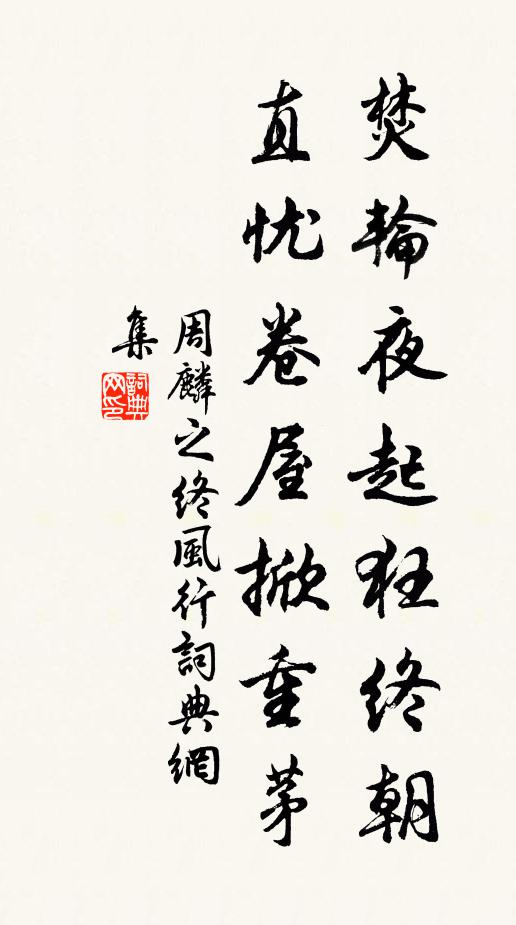 焚輪夜起狂終朝
直忧卷屋掀重茅
周麟之終風行詞典網
集
詞典
网印